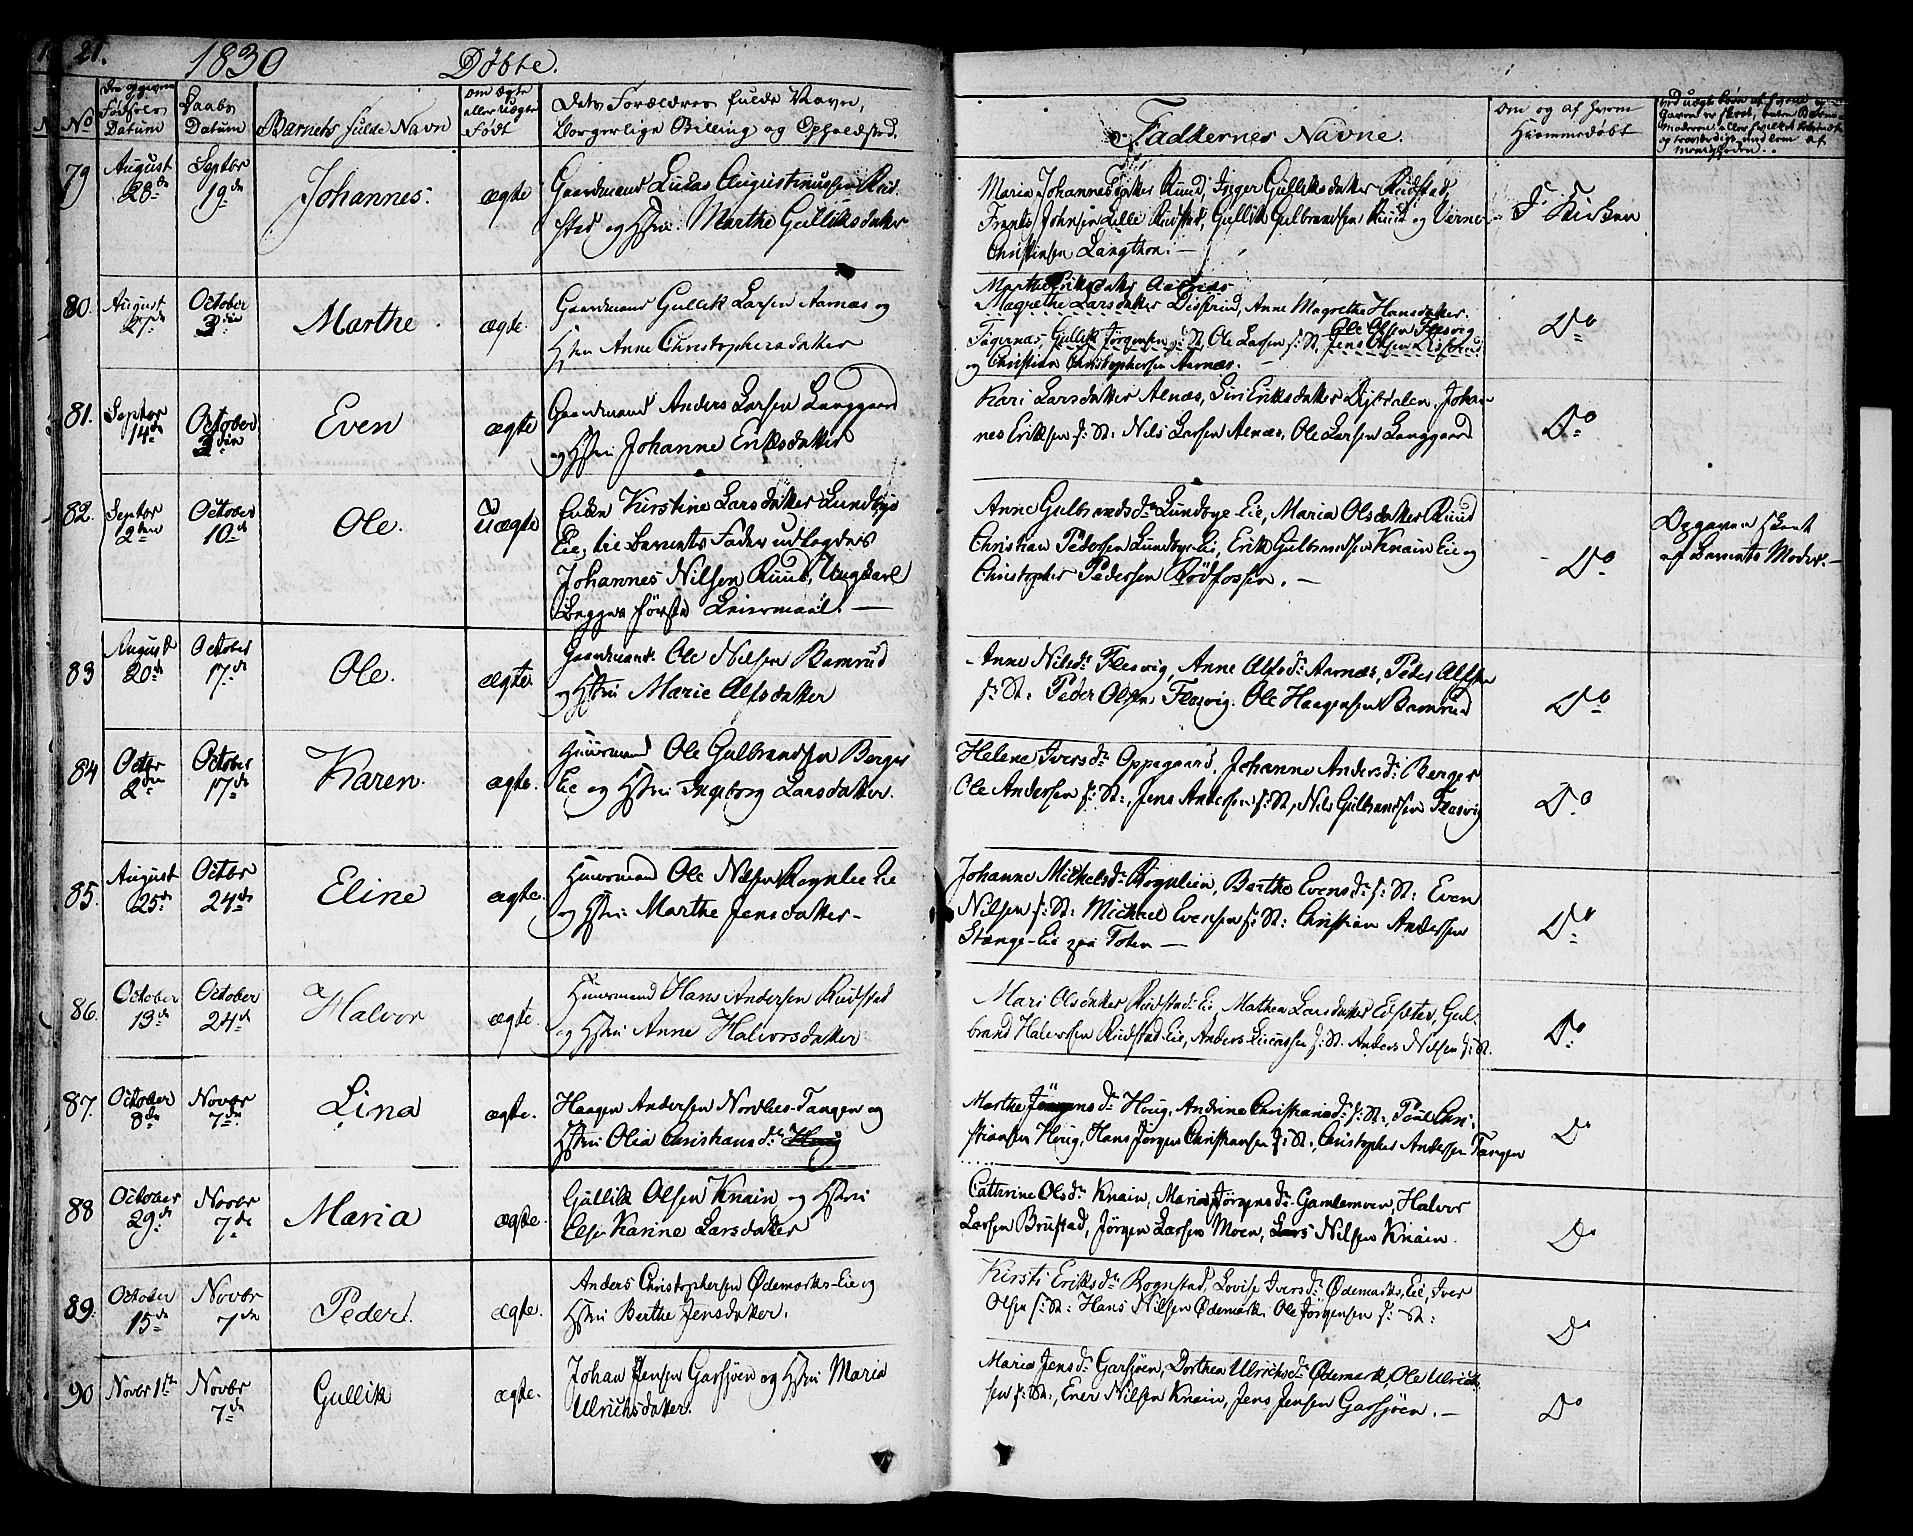 21. 1830 Døbte.
No
Den opgivne Fødsels Datum
Daabs Datum
Barnets fulde Navn
om ægte eller uægte Født
Dets Forældres fulde Navne,
borgerlige Stilling og Opholdssted.
Faddernes Navne.
Om og af hvem
Hjemmedøbt
79 August 28de Septbr 19de Johannes. ægte
Gaardmand Lucas Augustinussen Rud-
stad og Hstru: Marthe Gulliksdatter
Maria Johannesdatter Ruud, Inger Gulliksdatter Rudstad,
Frants Johnsen Lille Rudstad, Gullik Gulbrandsen Ruud og Verner
Christensen Langthon. —
I Kirken
80. August 27de October 3die Marthe ægte.
Gaardmand Gullik Larsen Aarnæs og
Hstru Anne Christophersdatter
Marthe Eriksdatter Aarnæs
Magrethe Larsdatter Disserud, Anne Magrethe Hansdatter
Ole Olsen Flesvig
Tagernæs, Gullik Jørgensen f: St, Ole Larsen f: St, Jens Olsen Disserud
og Christian Christophersen Aarnæs.
Do
81. Septbr 14de October 3die Even ægte
Gaardmand Anders Larsen Langgaard
og Hstru Johanne Eriksdatter
Kari Larsdatter Alnæs, Siri Eriksdatter Dybdalen, Johan-
nes Eriksen f: St: Nils Larsen Alnæs, Ole Larsen Langgaard
Do
82. Septbr 2den October 10de Ole. Uægte
Enken Kirstine Larsdatter Lundbye
Eie, til Barnets Fader udlagdes
Johannes Nilsen Ruud, Ungkarl
Begges første Leiermaal. —
Anne Gulbrandsdr Lundbye-Eie, Maria Olsdatter Ruud
Christian Pedersen Lundbye-Eie, Erik Gulbrandsen Knain Eie og
Christopher Pedersen Rødfossen. —
Do
Opgaven skeet
af Barnets Moder. —
83 August 20de October 17de Ole. ægte.
Gaardmand. Ole Nilsen Bamrud
og Hstru Marie Alfsdatter
Anne Nilsdr Flesvig, Anne Alfsdr Aarnæs, Peder Alfsen
f: St: Peder Olsen, Flesvig. Ole Haagensen Bamrud
Do
84 Octbr 2den October 17de Karen. ægte.
Huusmand Ole Gulbrandsen Berger
Eie og Hstru: Ingeborg Larsdatter.
Helene Iversdr Oppegaard, Johanne Andersdr: Berger
Ole Andersen f: St:, Jens Andersen f: St, Nils Gulbrandsen Flesvig
Do
85. August 25de Octbr 24de Eline ægte.
Huusmand Ole Nilsen Rognlie Eie
og Hstru: Marthe Jensdatter -
Johanne Michelsdr Rognlien, Berthe Evensdr: f: St: Even
Nilsen f: St: Michael Evensen f: St: Christian Andersen
Stange-Eie paa Toten —
Do
86. October 13de October 24de Halvor ægte.
Huusmand Hans Andersen Rudstad
og Hstru Anne Halvorsdatter
Mari Olsdatter Rudstad-Eie, Mathea Larsdatter Eidsæter, Gul-
brand Halvorsen Rudstad-Eie, Anders f: St. Anders Nilsen f: St.
Do
87. October 8de Novbr 7de Lina ægte.
Haagen Andersen Nordbes-Tangen og
Hstru Olia Christiansdr:
Marthe Jørgensdr: Houg, Andrine Christiansdr: f: St:, Poul Chri-
stiansen Houg, Hans Jørgen Christiansen f: St:, Christopher Andersen Tangen
Do
88 October 29de Novbr 7de Maria ægte.
Gullik Olsen Knain og Hstru
Else Karine Larsdatter
Cathrine Olsdr Knain, Maria Jørgensdr: Gamlemoen, Halvor
Larsen Brustad, Jørgen Larsen Moen, Lars Nilsen Knain.
Do
89. October 15de Novbr 7de Peder. ægte.
Anders Christophersen Ødemarks-Eie og
Hstru Berthe Jensdatter.
Kirsti Eriksdr. Rognstad, Lovise Iversdr: Ødemarks, Eie, Iver
Olsen f: St: Hans Nilsen Ødemark. Ole Jørgensen f: St:
Do
90 Novbr 1ste Novbr 7de Gullik ægte.
Johan Jensen Garsjøen og Hstru Maria
Ulrichsdatter.
Maria Jensdr Garsjøen, Dorthea Ulrichsdr: Ødemark, Ole Ulrich-
sen f: St:, Ener Nilsen Knain, Jens Jensen Garsjøen. —
Do